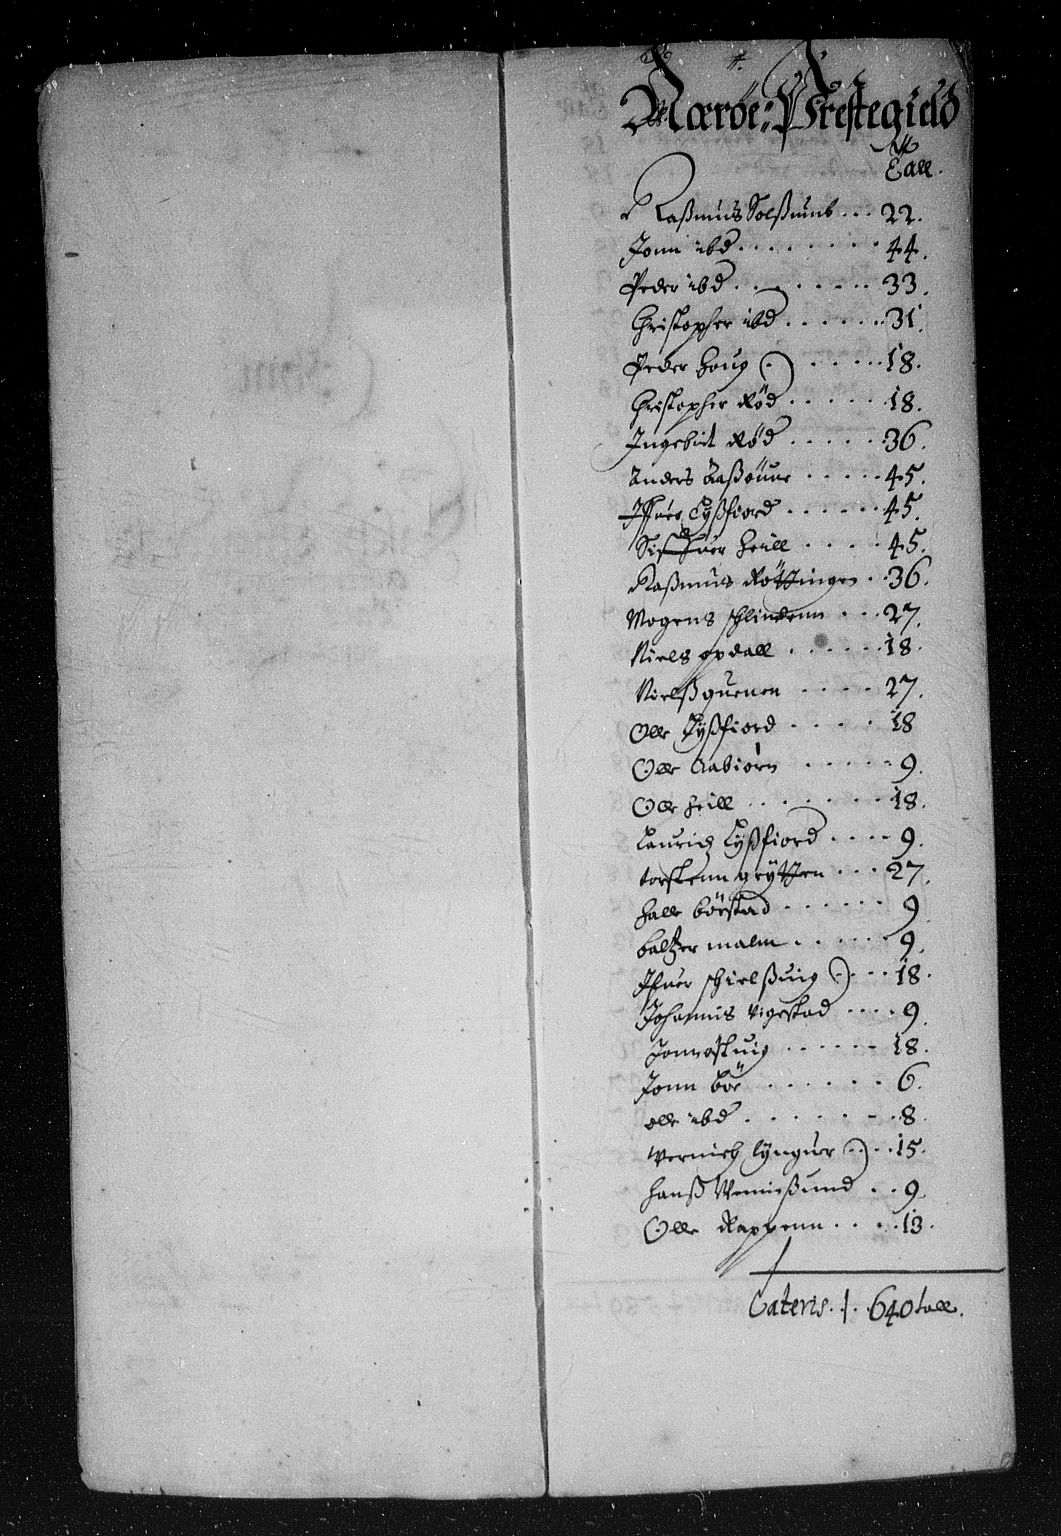 Nærøe: Prestegield
Tall.
Rasmus Solsßumb . . . 22.
Jonn ibd . . . . . . . 44.
Peder ibd . . . . . . . 33.
Christopher ibd . . . . . . 31.
Peder houg . . . . . 18.
Christopher Rød . . . . . 18.
Ingebrit Rød . . . . . . 36.
Anders Aaßøuer . . . . . 45.
Iffuer Lyßfiord . . . . . . 45.
heill . . . . 45.
Raßmus Røttingen . . 36.
Mogens schlindenn . . . 27.
Niels opdall . . . . . . 18.
Nielß quenen . . . . 27.
Olle Lyßfiord . . . . . 18
Olle Aabiørn . . . . . 9.
Olle heill . . . . . . . 18.
Lauridz Lyßfiord . . . . 9.
torstenn grøtten . . . 27.
halle børstad . . . . . . 9
baltzer malm . . . . . 9.
Ifuer schielßuig . . . 18.
Johannis vigestad . . . . 9.
Jonn . . . . . . 18.
Jonn bør . . . . . . 6.
olle ibd . . . . . . . 8.
Wernich lyngur . . . 15.
hanß Wennießund . . 9.
Olle Rappenn . . . . . 13.
Lateris . / . 640 tall.